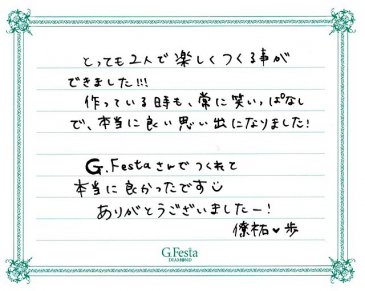 とっても2人で楽しくつくる事が
できました!!!
作っている時も、常に笑いっぱなし
で、本当に良い思い出になりました!
G.Festaさんでつくれて
本当に良かったです
ありがとうございましたー!
僚祐♥歩
G.Festa
DIAMOND